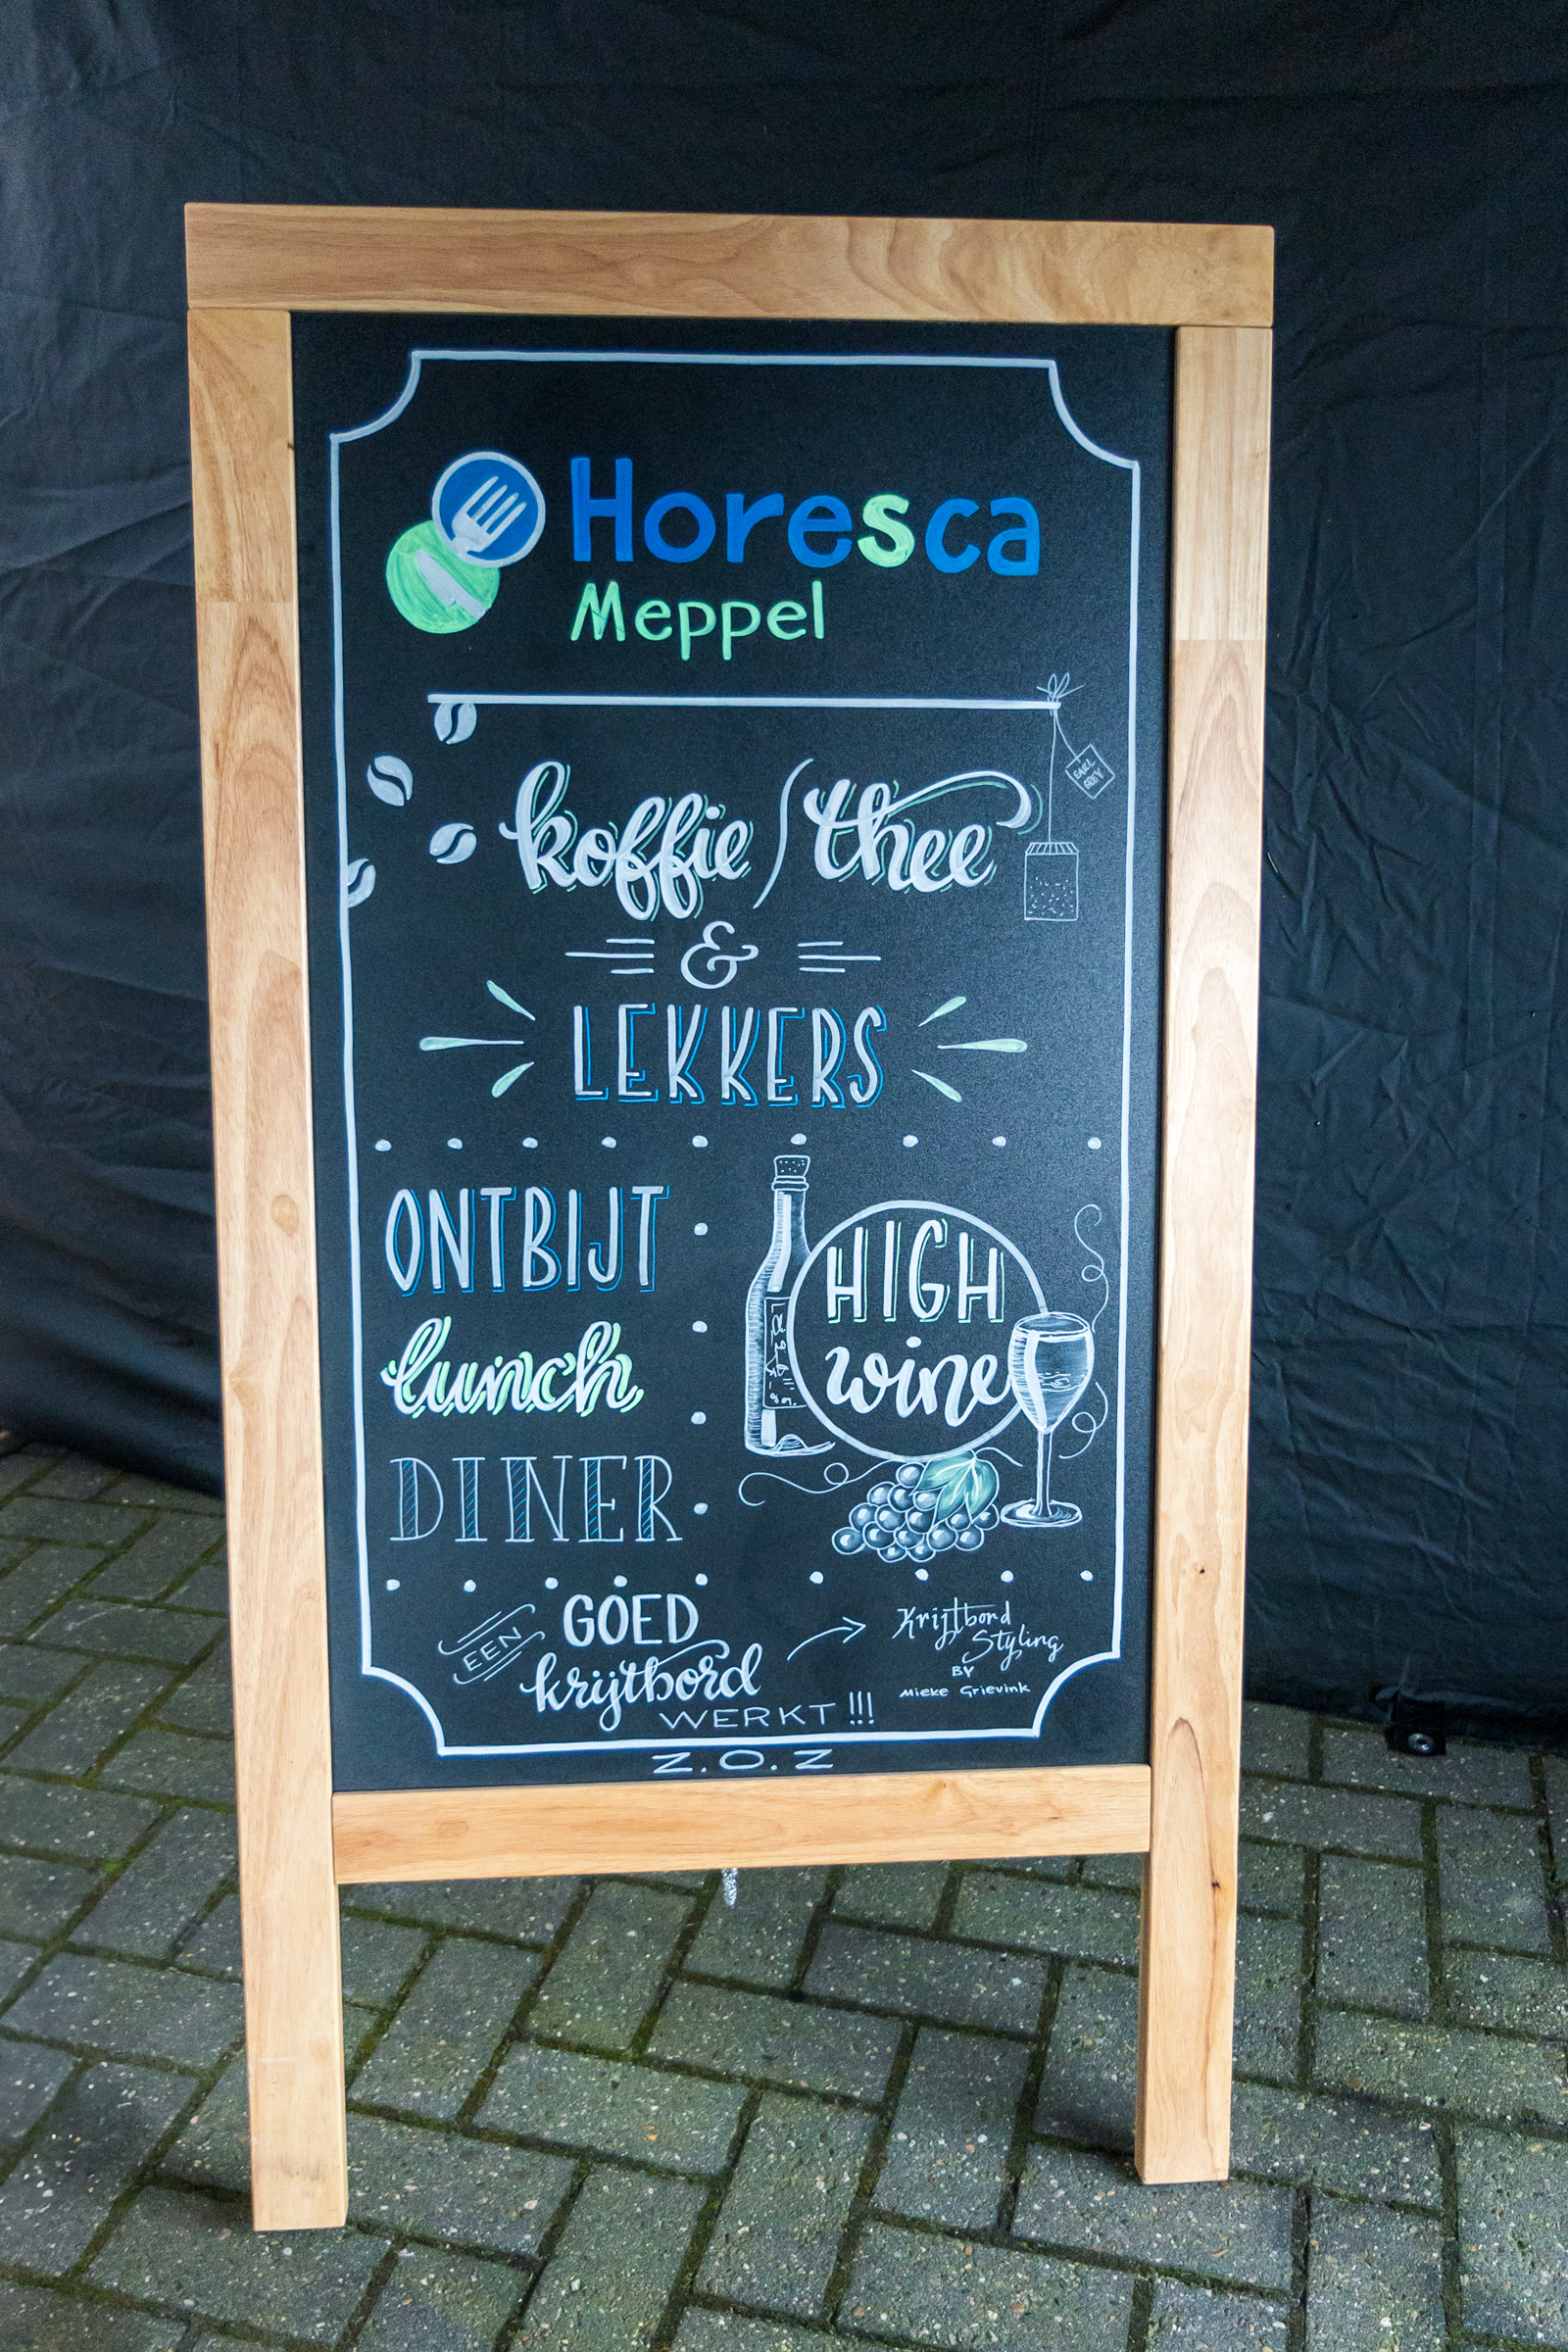 Horesca
Meppel
EARL
GREY
koffie/thee
&
LEKKERS
ONTBIJT
lunch
DINER
HIGH
wine
EEN
GOED
krijtbord
WERKT!!!
Krijtbord
Styling
BY
Mieke Grievink
Z.O.Z